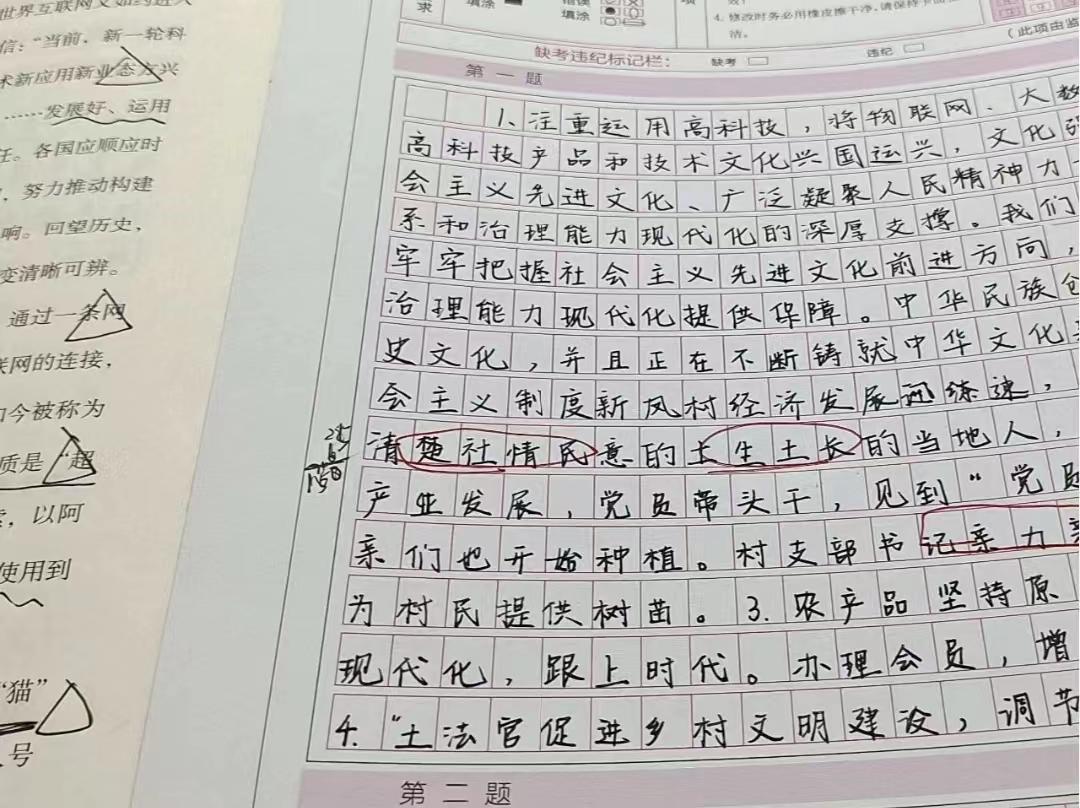 世界互联网
信：“当前，新一轮科
术新应用新业态方兴
……发展好、运用
任。各国应顺应时
，努力推动构建
响。回望历史，
变清晰可辨。
通过一条网
联网的连接，
如今被称为
质是“超
，以阿
使用到
“猫”
号
求
填涂
填涂
4. 修改时务必用橡皮擦干净，请保持卡面
洁。
（此项由监
缺考违纪标记栏：
缺考
违纪
第一题
1. 注重运用高科技，将物联网、大数
高科技产品和技术文化兴国运兴，文化强
会主义先进文化、广泛凝聚人民精神力
系和治理能力现代化的深厚支撑。我们
牢牢把握社会主义先进文化前进方向，
治理能力现代化提供保障。中华民族创
史文化，并且正在不断铸就中华文化
会主义制度新风村经济发展迅练速，
清楚社情民意的土生土长的当地人，
产业发展，党员带头干，见到“党员
亲们也开始种植。村支部书记亲力亲
为村民提供树苗。3. 农产品坚持原
现代化，跟上时代。办理会员，增
4. “土法官促进乡村文明建设，调节
第二题